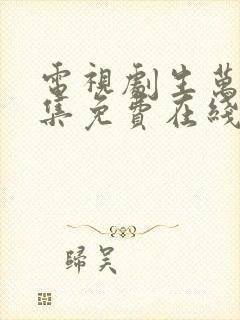 電視劇生萬
集免費在綫
歸吴